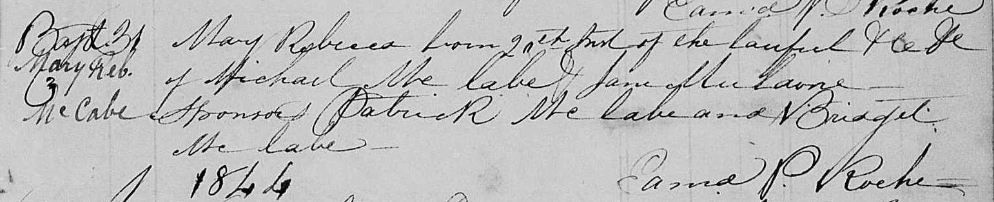 Eamd P. Roche
Bapt. 31 Mary Rebecca born 20th Inst of the lawful &c &c
Mary Reb. of Michael Mc Cabe & Jane
Mc Cabe Sponsors Patrick Mc Cabe and Bridget
Mc Cabe
1844 Eamd P. Roche